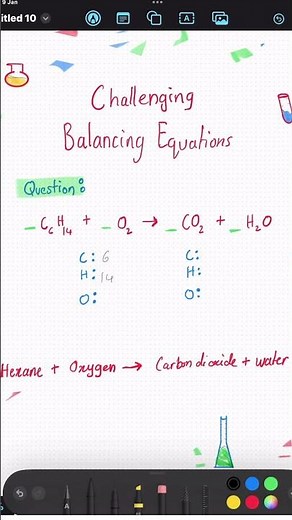 9 Jan
titled 10
Challenging
Balancing Equations
Question:
_ C₆H₁₄ + _ O₂ → _ CO₂ + _ H₂O
C: 6 C:
H: 14 H:
O: O:
Hexane + Oxygen → Carbon dioxide + water